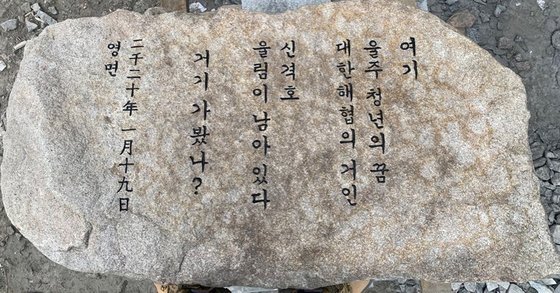 여기
울주 청년의 꿈
대한해협의 거인
신격호
울림이 남아 있다
거기 가봤나?
二千二十年 一月十九日
영면